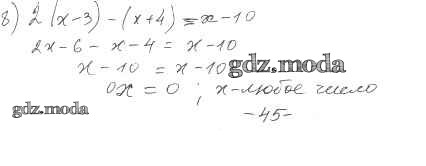 8) 2(x-3) - (x+4) = x-10
2x-6 - x-4 = x-10
x-10 = x-10
gdz.moda
0x = 0 ; x-любое число
gdz.moda
-45-